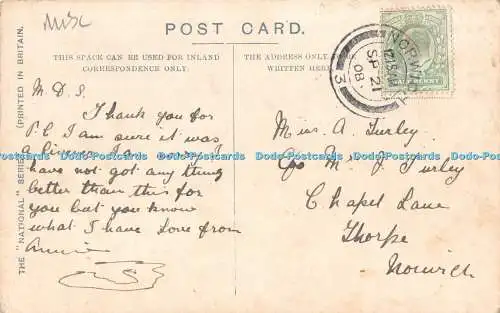 Misc
POST CARD.
THIS SPACE CAN BE USED FOR INLAND
CORRESPONDENCE ONLY.
THE ADDRESS ONLY
WRITTEN HERE
THE "NATIONAL" SERIES
(PRINTED IN BRITAIN.
NORWICH
SP 21
08
3
PENNY
M. D. S.
Thank you for
P.C I am sure it was
a I am sorry I
have not got any thing
better than this for
you but you know
what I have Love from
Annie
Miss. A. Turley
C/o M. J. Turley
Chapel Lane
Thorpe
Norwich
Dodo-Postcards Dodo-Postcards Dodo-Postcards Dodo-Postcards Dodo-Postcards